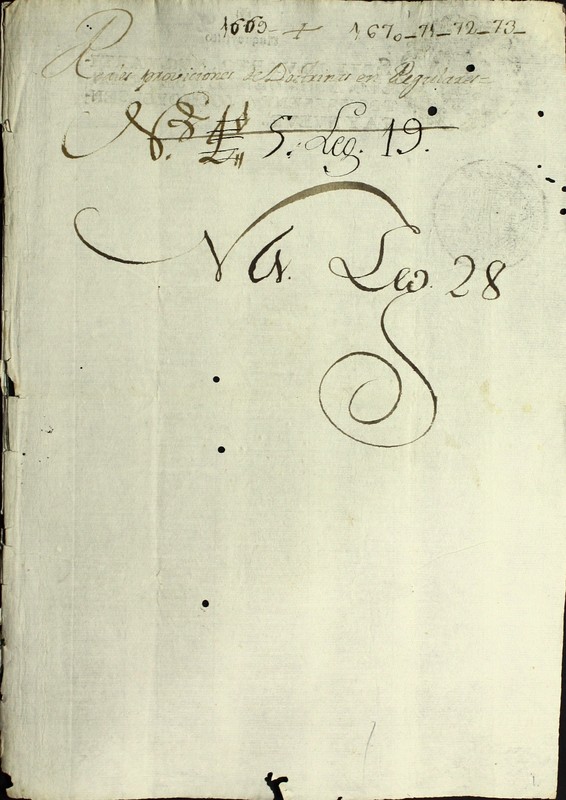 1669 - + 1670-71-72-73-
Reales proviciones de Doctrinas en Regulares=
N. 5. Leg. 19.
N Leg. 28